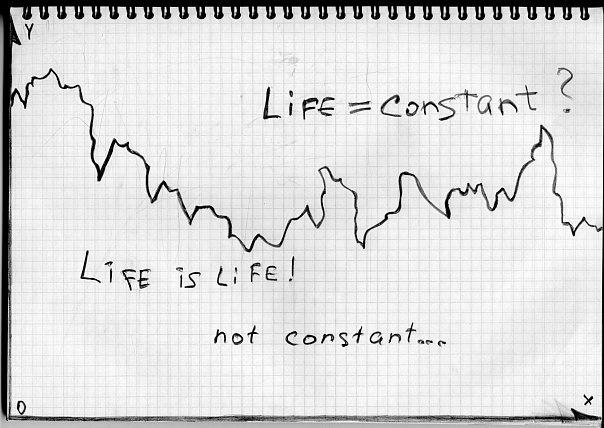 Y
LiFE = constant?
LiFE is LiFE!
not constant...
0
X